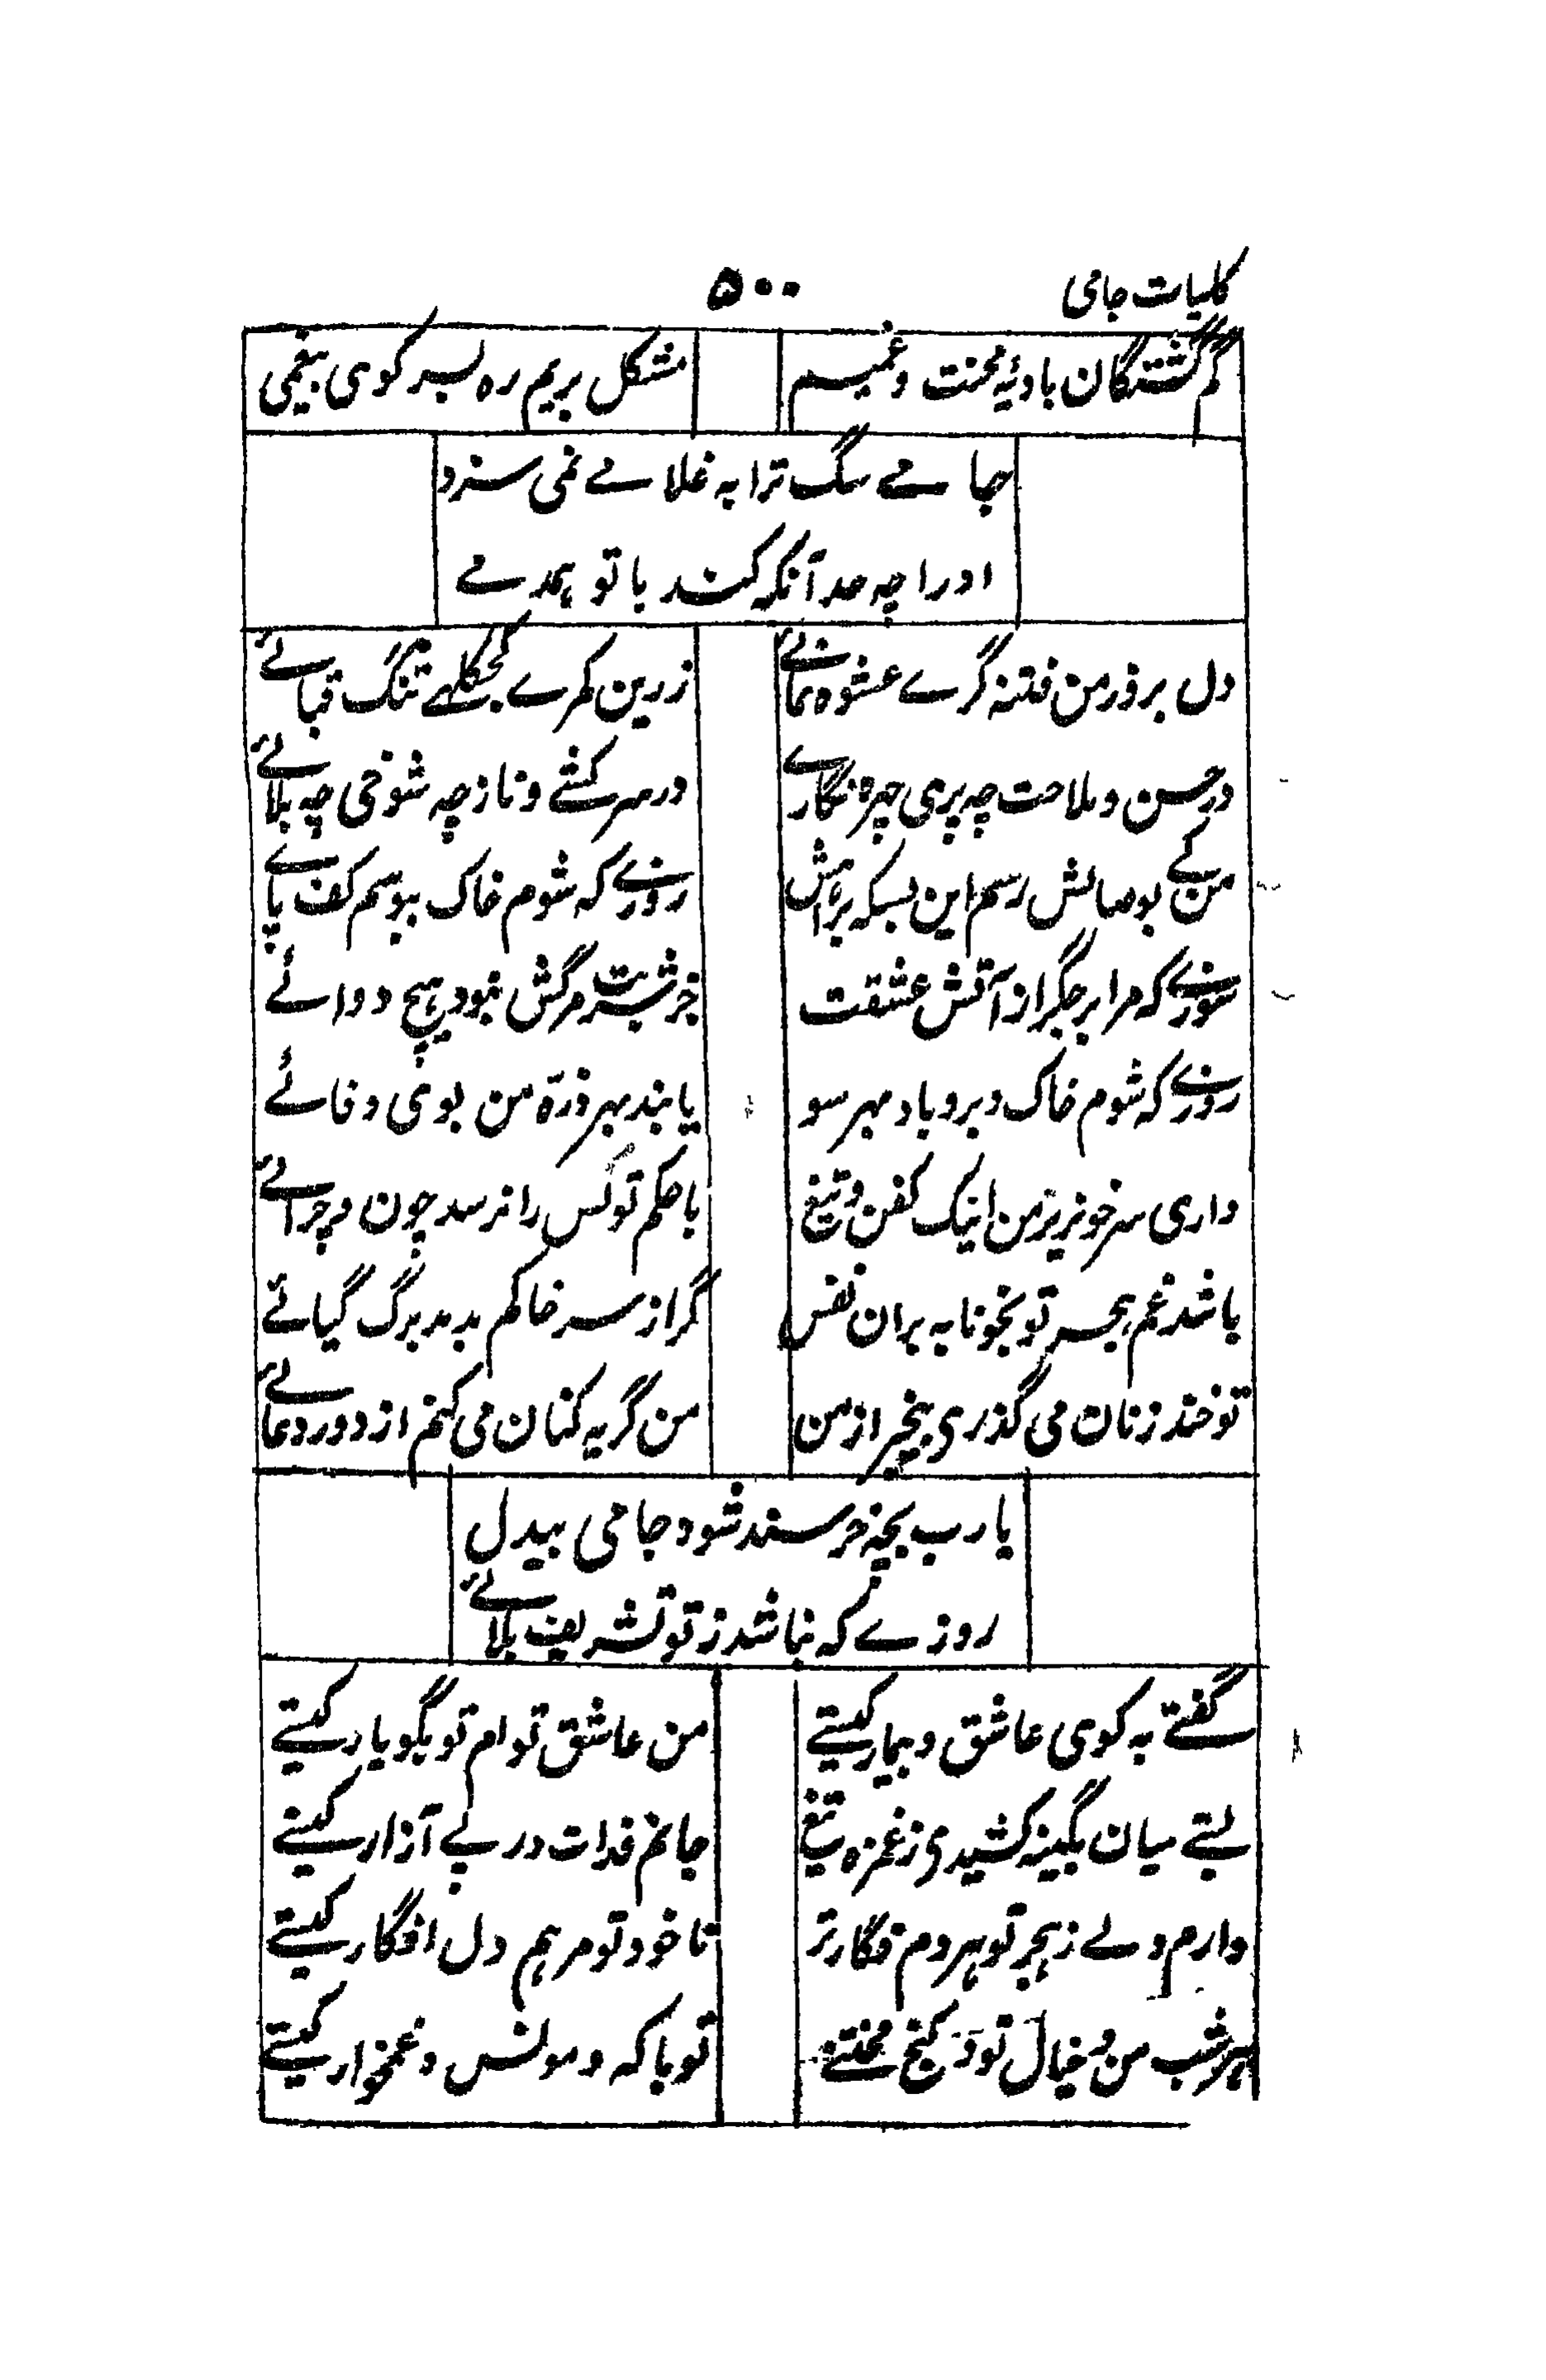 کلیات جامی
۵۰۰
گم گشتگان بادیۂ محنت و غمیم
مشکل بریم ره بسر کوی بیغمی
جامے سگ ترا به غلامے نمی سزد
اورا چه حد آنکه کند با تو همدمے
دل برد زمن فتنه گرے عشوه نمائے
زرین کمرے کجکلہے تنگ قبائے
در حسن و ملاحت چه پری چهره نگارے
در سرکشے و ناز چه شوخی چه بلائے
من کے بوصالش رسم این بسکه براهش
روزے که شوم خاک ببوسم کف پائے
سوزے که مرا بر جگر از آتش عشقت
جز شربت مرگش نبود هیچ دوائے
روزے که شوم خاک و برد باد بهر سو
یابند بهر ذرّۀ من بوی وفائے
داری سر خونریز من اینک کفن و تیغ
با حکم تو کس را نرسد چون و چرائے
باشد غم هجر تو بخونابه بران نقش
گر از سر خاکم بدمد برگ گیائے
تو خنده زنان می گذری بیخبر از من
من گریه کنان می کنم از دور دعائے
یارب بچه خرسند شود جامی بیدل
روزے که نباشد ز تو تشریف بلائے
گفتے به کوی عاشق و بیمار کیستے
من عاشق توام تو بگو یار کیستے
بستے میان بکینه کشیدی ز غمزه تیغ
جانم فدات در پے آزار کیستے
دارم دلے ز هجر تو هردم فگارتر
تا خود تو مرهم دل افگار کیستے
هر شب من و خیال تو در کنج محنتے
تو با که و مونس و غمخوار کیستے